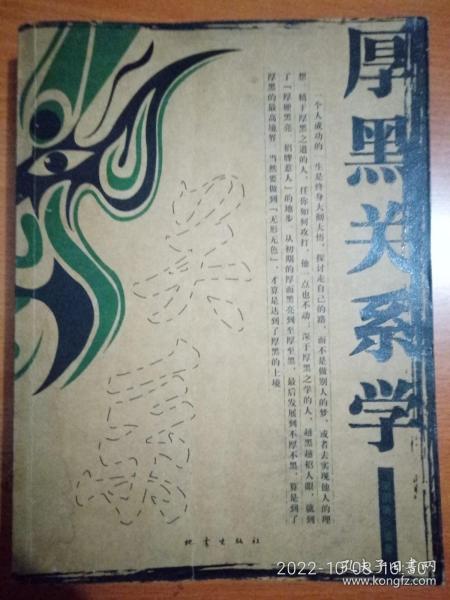 厚黑关系学
一个人成功的一生是终身大彻大悟，探讨走自己的路，而不是做别人的梦，或者去实现他人的理
想。精于厚黑之道的人，任你如何攻打，他一点也不动，深于厚黑之学的人，越黑越招人眼，就到
了『厚硬黑亮，招牌惹人』的地步。从初期的厚而黑亮到至厚至黑，最后发展到不厚不黑，算是到了
厚黑的最高境界。当然要做到『无形无色』，才算是达到了厚黑的上境
地震出版社
2022-10-08 10:50
孔夫子旧书网
www.kongfz.com